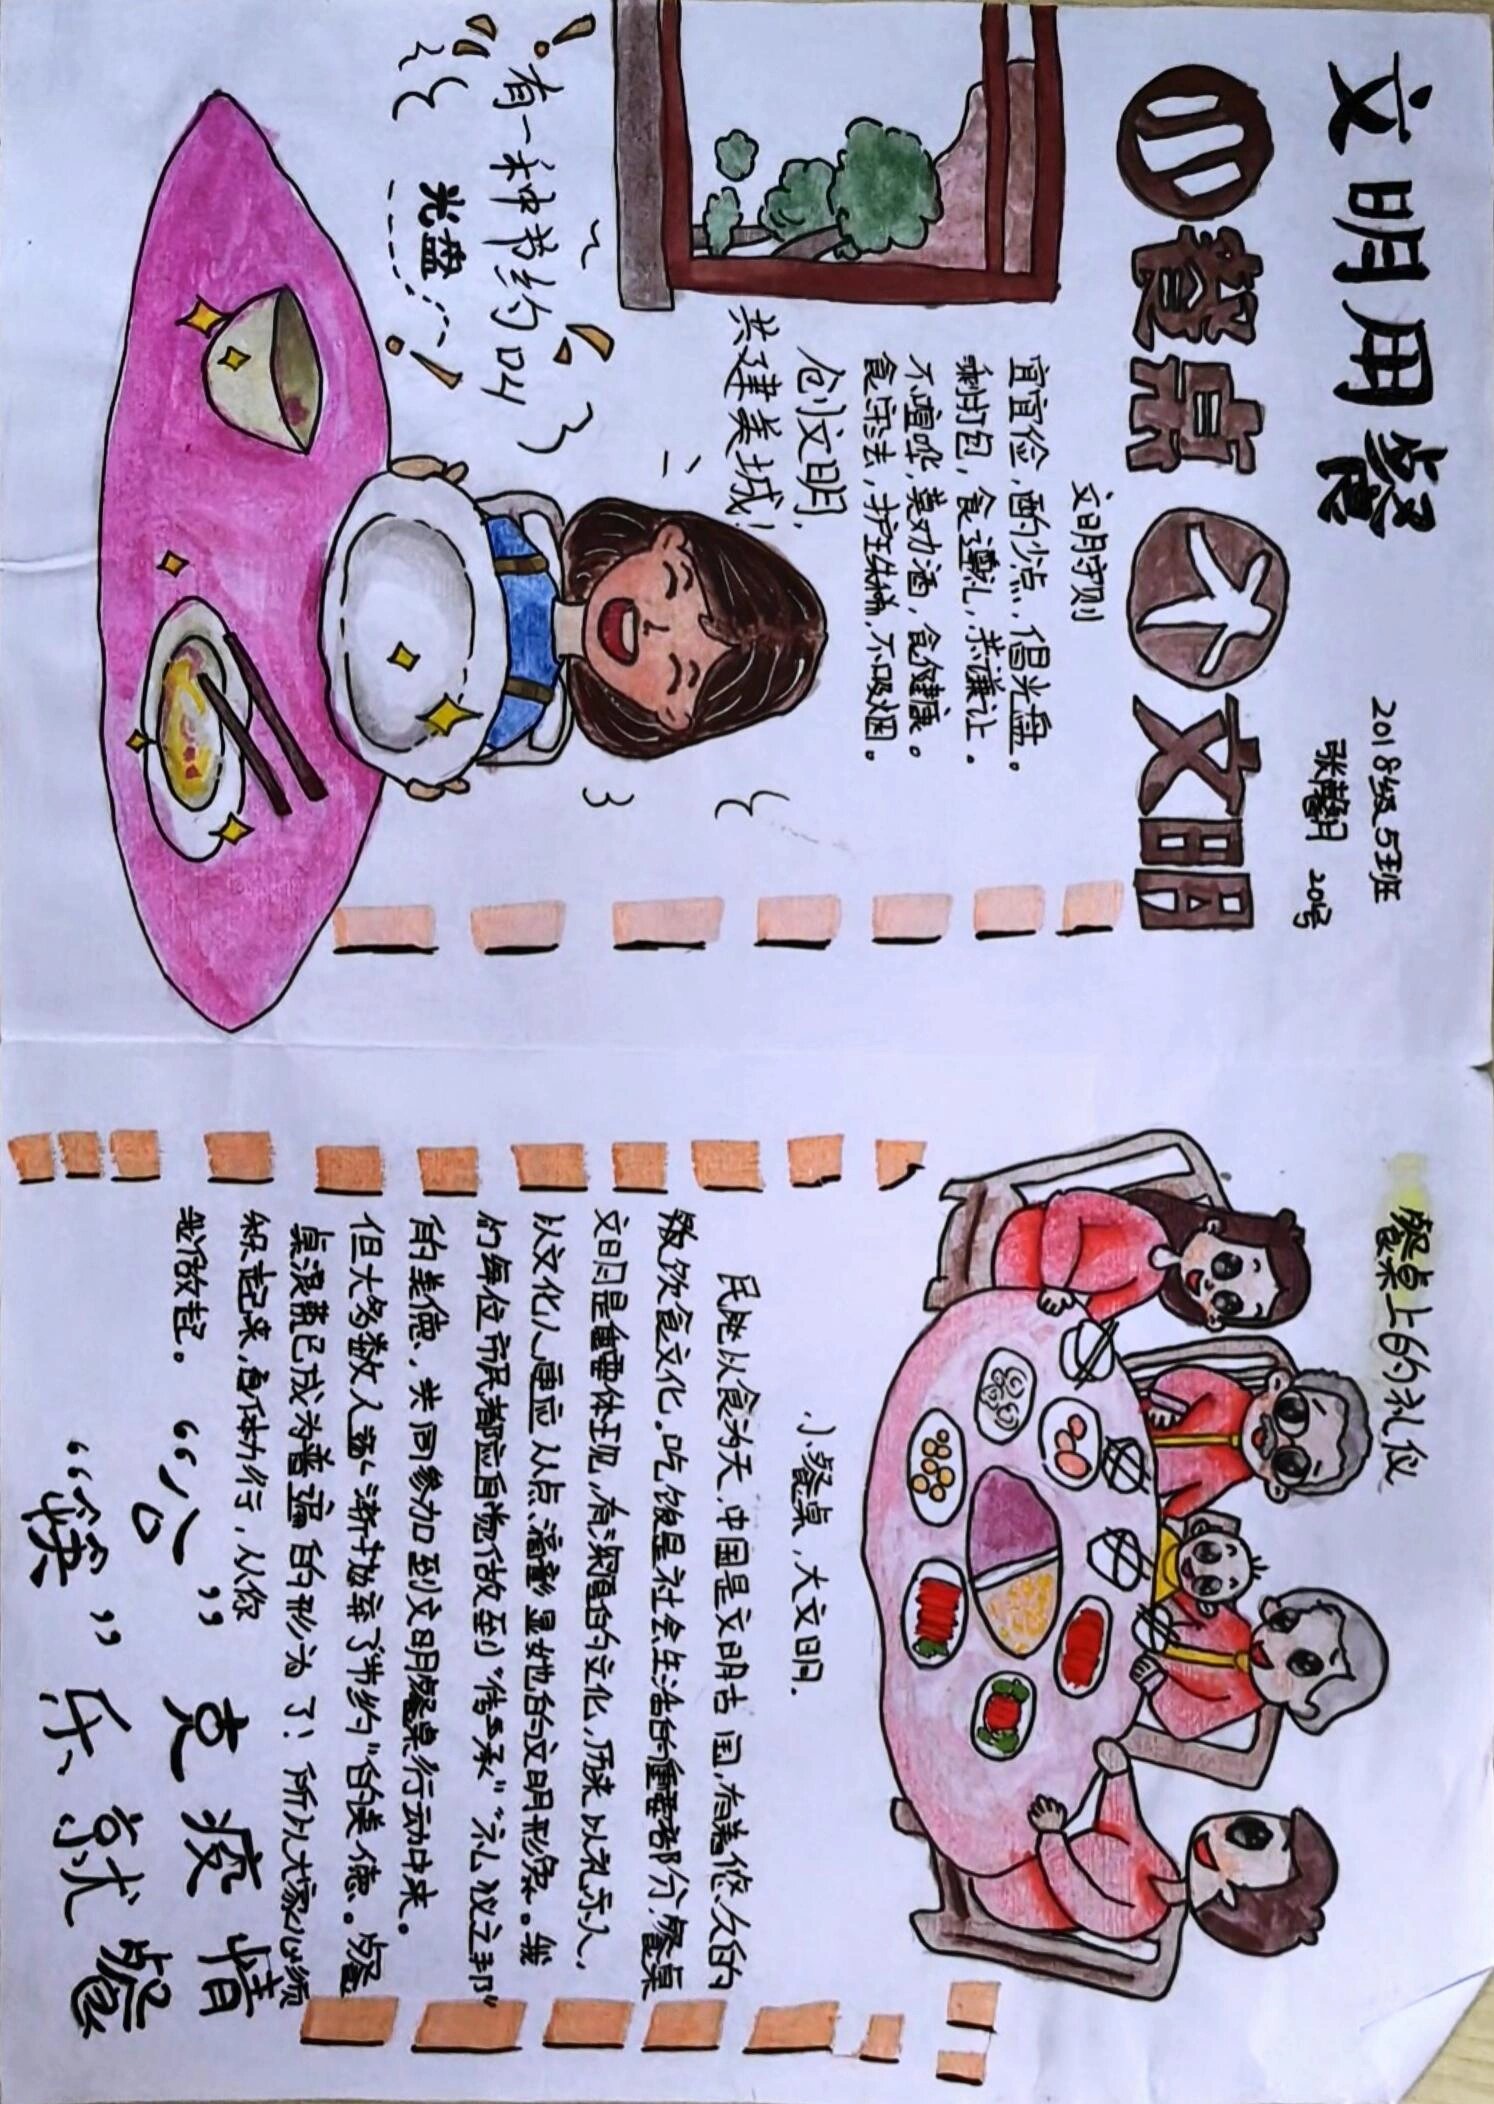 文明用餐
2018级5班
张馨月 20号
小餐桌大文明
文明守则
宜宜俭，酌少点，倡光盘。
剩打包，食遵礼，恭谦让。
不喧哗，莫劝酒，食健康。
食守法，护珠稀，不吸烟。
创文明，
共建美城！
有一种节约叫
光盘
餐桌上的礼仪
小餐桌，大文明．
民以食为天，中国是文明古国，有着悠久的
饮食文化。吃饭是社会生活的重要部分，餐桌
文明是重要体现，有深厚的文化，历来以礼示人，
以文化人，更应从点滴彰显她的文明形象。我
们每位市民都应自觉做到“传承”“礼仪之邦”
的美德，共同参加到文明餐桌行动中来。
但大多数人逐渐摒弃了“节约”的美德。餐
桌浪费已成为普遍的形为了！所以大家必须
积起来，身体力行，从你
我做起。
“公”克疫情
“筷”乐就餐